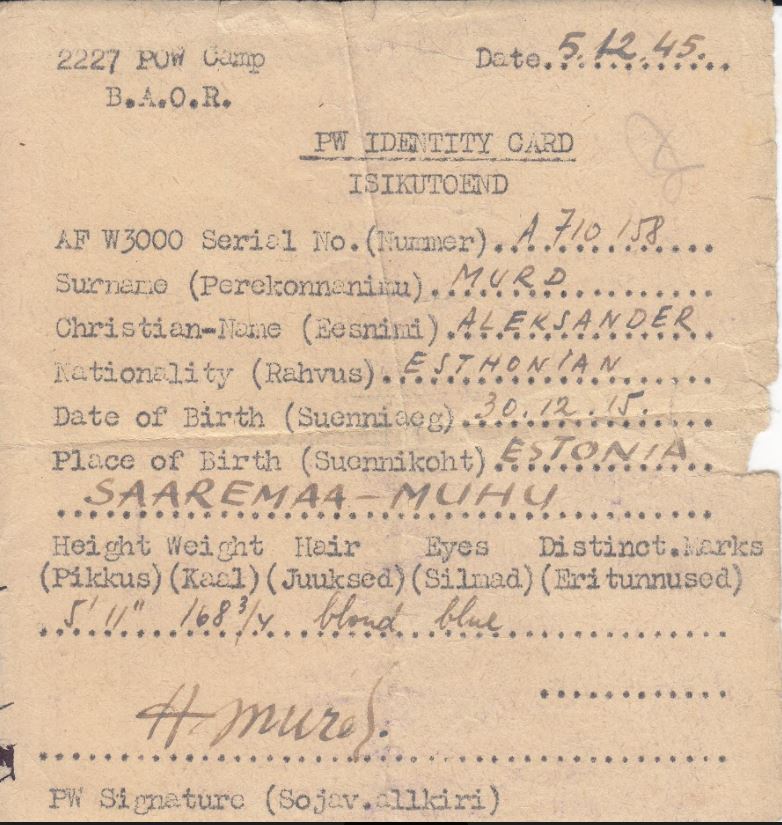 2227 POW Camp Date. 5.12.45.
B.A.O.R.
PW IDENTITY CARD
ISIKUTOEND
AF W3000 Serial No.(Nummer). A 710 158
Surname (Perekonnanimu). MURD
Christian-Name (Eesnimi). ALEKSANDER
Nationality (Rahvus). ESTHONIAN
Date of Birth (Suenniaeg). 30.12.15.
Place of Birth (Suennikoht) ESTONIA
SAAREMAA-MUHU
Height Weight Hair Eyes Distinct.Marks
(Pikkus)(Kaal)(Juuksed)(Silmad)(Eritunnused)
5' 11" 168 3/4 blond blue
A. Murd.
PW Signature (Sojav.allkiri)